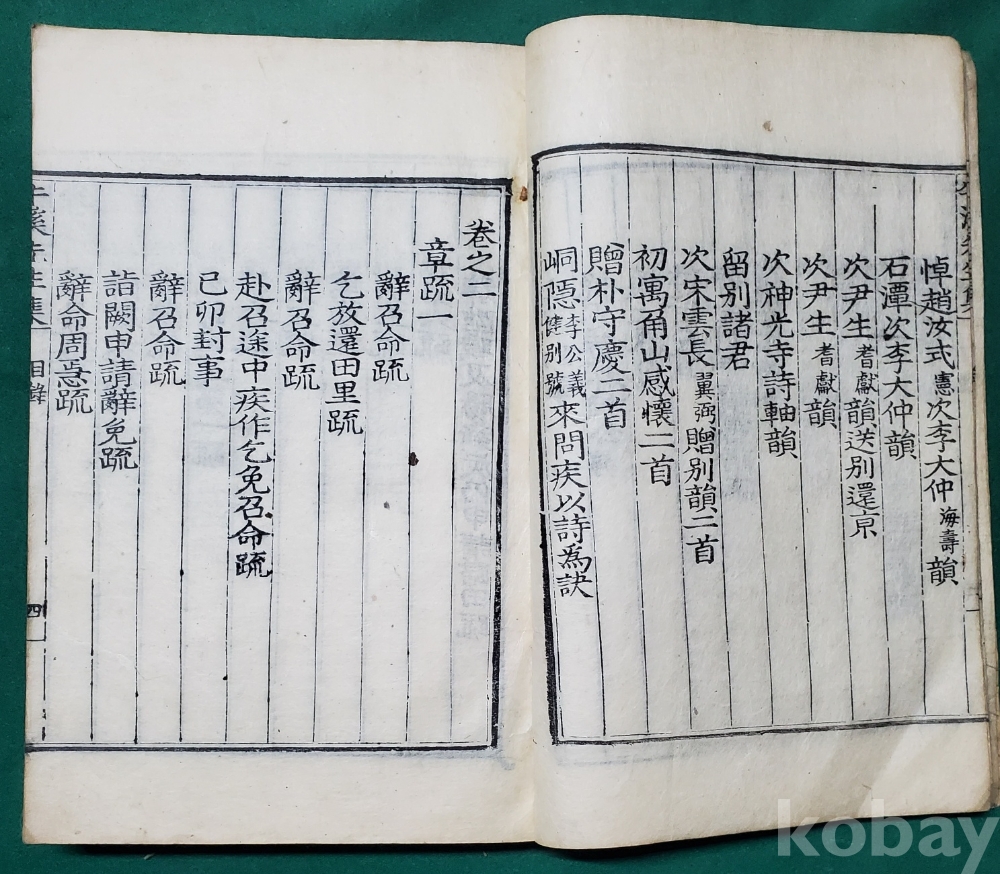 悼趙汝式憲次李大仲海壽韻
石潭次李大仲韻
次尹生耆獻韻送別還京
次尹生耆獻韻
次神光寺詩軸韻
留別諸君
次宋雲長翼弼贈別韻二首
初寓角山感懷二首
贈朴守慶二首
峒隱李公義健別號來問疾以詩爲訣
卷之二
章疏一
辭召命疏
乞放還田里疏
辭召命疏
赴召途中疾作乞免召命疏
己卯封事
辭召命疏
詣闕申請辭免疏
辭命周急疏
牛溪先生集 目錄 四
kobay